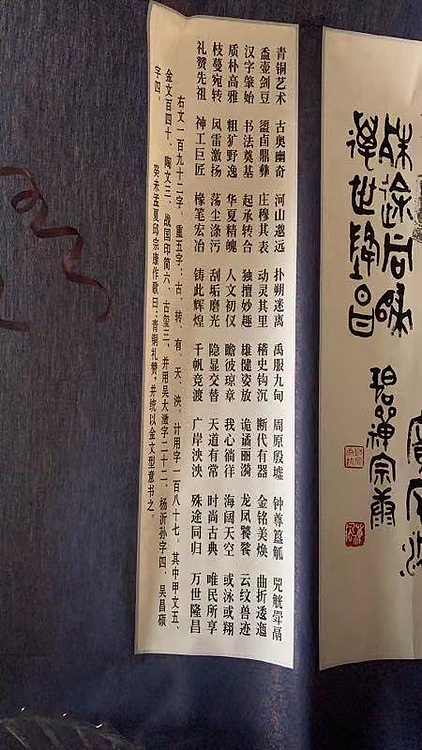 殊途同归
万世隆昌
青铜艺术 古奥幽奇 河山邈远 扑朔迷离 禹服九甸 周原殷墟 钟尊簋觚 兕觥斝鬲
盉壶剑豆 盨卤鼎彝 庄穆其表 动灵其里 稽史钩沉 断代有器 金铭美焕 曲折逶迤
汉字肇始 书法奠基 起承转合 独擅妙趣 雄健姿放 诡谲丽漪 龙凤饕餮 云纹兽迹
质朴高雅 粗犷野逸 华夏精魄 人文初仪 瞻彼琼章 我心徜徉 海阔天空 或泳或翔
枝蔓宛转 风雷激扬 荡尘涤污 刮垢磨光 隐显交替 天道有常 时尚古典 唯民所享
礼赞先祖 神工巨匠 椽笔宏冶 铸此辉煌 千帆竞渡 广岸泱泱 殊途同归 万世隆昌
右文一百九十二字，重五字：古、转、有、天、泱，计用字一百八十七。其中甲文五、
金文百四十、陶文三、战国印简六、古玺三，并用吴大澂字二十二、杨沂孙字四、吴昌硕
字四。
癸未孟夏邱宗康作歌曰：青铜礼赞，并统以金文型意书之。